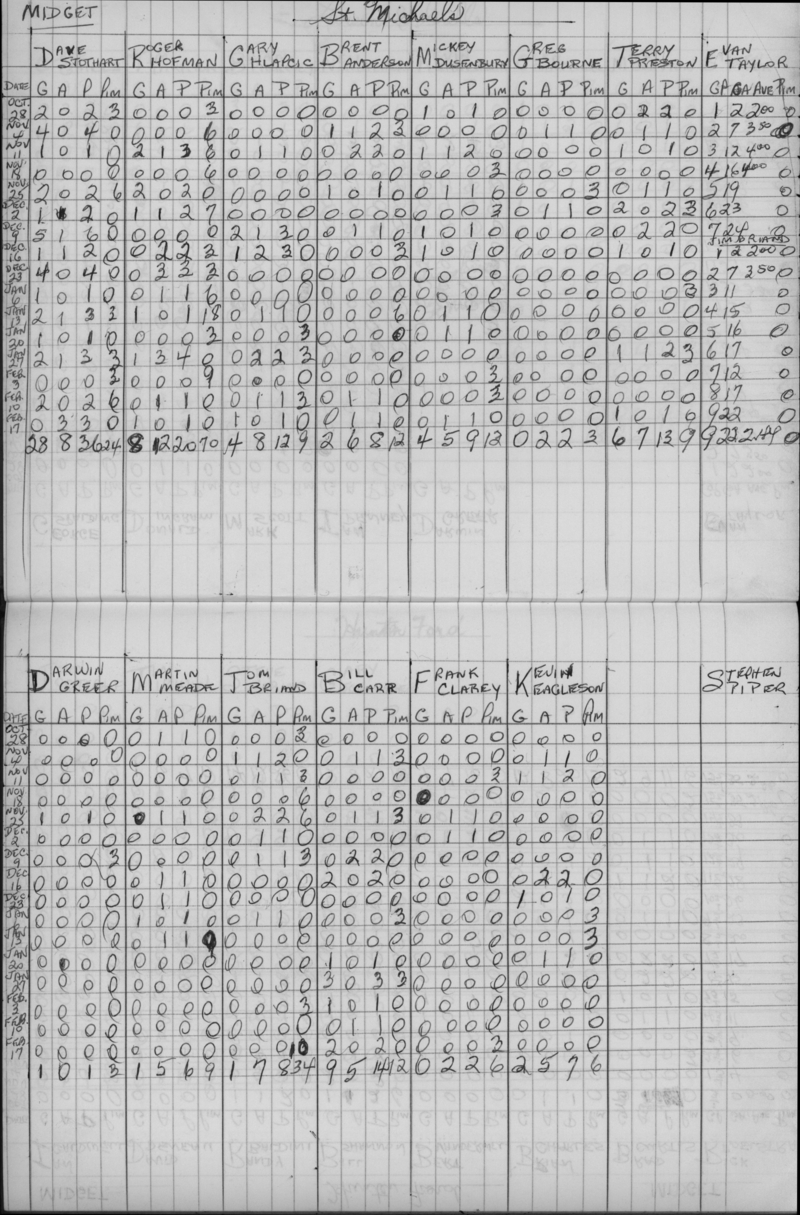 MIDGET St. Michaels
DAVE STOTHART ROGER HOFMAN GARY HLAPCIC BRENT ANDERSON MICKEY DUSENBURY GREG BOURNE TERRY PRESTON EVAN TAYLOR
DATE G A P Pim G A P Pim G A P Pim G A P Pim G A P Pim G A P Pim G A P Pim GP GA AVE Pim
OCT. 28 2 0 2 3 0 0 0 3 0 0 0 0 0 0 0 0 1 0 1 0 0 0 0 0 0 2 2 0 1 2 2.00 0
NOV 4 4 0 4 0 0 0 0 6 0 0 0 0 1 1 2 3 0 0 0 0 0 1 1 0 0 1 1 0 2 7 3.50 0
NOV 11 1 0 1 0 2 1 3 6 0 1 1 0 0 2 2 0 1 1 2 0 0 0 0 0 1 0 1 0 3 12 4.00 0
NOV. 18 0 0 0 0 0 0 0 6 0 0 0 0 0 0 0 0 0 0 0 3 0 0 0 0 0 0 0 0 4 16 4.00 0
NOV. 25 2 0 2 6 2 0 2 0 0 0 0 0 1 0 1 0 0 1 1 0 0 0 0 3 0 1 1 0 5 19 0
DEC. 2 1 1 2 0 1 1 2 7 0 0 0 0 0 0 0 0 0 0 0 3 0 1 1 0 2 0 2 3 6 23 0
DEC. 9 5 1 6 0 0 0 0 0 2 1 3 0 0 1 1 0 1 0 1 0 0 0 0 0 0 2 2 0 7 24 0
JIM BRIAND
DEC. 16 1 1 2 0 0 2 2 3 1 2 3 0 0 0 0 3 1 0 1 0 0 0 0 0 1 0 1 0 1 2 2.00 0
DEC 23 4 0 4 0 0 3 3 3 0 0 0 0 0 0 0 0 0 0 0 0 0 0 0 0 0 0 0 0 2 7 3.50 0
JAN 6 1 0 1 0 0 1 1 6 0 0 0 0 0 0 0 0 0 0 0 0 0 0 0 0 0 0 0 3 3 11 0
JAN 13 2 1 3 3 1 0 1 18 0 1 1 0 0 0 0 6 0 1 1 0 0 0 0 0 0 0 0 0 4 15 0
JAN 20 1 0 1 0 0 0 0 3 0 0 0 3 0 0 0 0 0 1 1 0 0 0 0 0 0 0 0 0 5 16 0
JAN 27 2 1 3 3 1 3 4 0 0 2 2 3 0 0 0 0 0 0 0 0 0 0 0 0 1 1 2 3 6 17 0
FEB 3 0 0 0 3 0 0 0 9 0 0 0 0 0 0 0 0 0 0 0 3 0 0 0 0 0 0 0 0 7 12 0
FEB. 10 2 0 2 6 0 1 1 0 0 1 1 3 0 1 1 0 0 0 0 3 0 0 0 0 0 0 0 0 8 17 0
FEB. 17 0 3 3 0 1 0 1 0 1 0 1 0 0 1 1 0 0 1 1 0 0 0 0 0 1 0 1 0 9 22 0
28 8 36 24 8 12 20 70 4 8 12 9 2 6 8 12 4 5 9 12 0 2 2 3 6 7 13 9 9 22 2.44 0
DARWIN GREER MARTIN MEADE TOM BRIAND BILL CARR FRANK CLAREY KEVIN EAGLESON STEPHEN PIPER
DATE G A P Pim G A P Pim G A P Pim G A P Pim G A P Pim G A P Pim
OCT 28 0 0 0 0 0 1 1 0 0 0 0 3 0 0 0 0 0 0 0 0 0 0 0 0
NOV 4 0 0 0 0 0 0 0 0 1 1 2 0 0 1 1 3 0 0 0 0 0 1 1 0
NOV 11 0 0 0 0 0 0 0 0 0 1 1 3 0 0 0 0 0 0 0 3 1 1 2 0
NOV 18 0 0 0 0 0 0 0 0 0 0 0 6 0 0 0 0 0 0 0 0 0 0 0 0
NOV. 25 1 0 1 0 0 1 1 0 0 2 2 6 0 1 1 3 0 1 1 0 0 0 0 0
DEC. 2 0 0 0 0 0 0 0 0 0 1 1 0 0 0 0 0 0 1 1 0 0 0 0 0
DEC. 9 0 0 0 3 0 0 0 0 0 1 1 3 0 2 2 0 0 0 0 0 0 0 0 0
DEC 16 0 0 0 0 0 1 1 0 0 0 0 0 2 0 2 0 0 0 0 0 0 2 2 0
DEC 23 0 0 0 0 0 1 1 0 0 0 0 0 0 0 0 0 0 0 0 0 1 0 1 0
JAN 0 0 0 0 1 0 1 0 0 1 1 0 0 0 0 3 0 0 0 0 0 0 0 3
JAN 13 0 0 0 0 0 1 1 9 0 0 0 0 0 0 0 0 0 0 0 0 0 0 0 3
JAN 20 0 0 0 0 0 0 0 0 0 0 0 0 1 0 1 0 0 0 0 0 0 1 1 0
JAN 27 0 0 0 0 0 0 0 0 0 0 0 0 3 0 3 3 0 0 0 0 0 0 0 0
FEB. 3 0 0 0 0 0 0 0 0 0 0 0 3 1 0 1 0 0 0 0 0 0 0 0 0
FEB. 10 0 0 0 0 0 0 0 0 0 0 0 0 0 1 1 0 0 0 0 0 0 0 0 0
FEB. 17 0 0 0 0 0 0 0 0 0 0 0 10 2 0 2 0 0 0 0 3 0 0 0 0
1 0 1 3 1 5 6 9 1 7 8 34 9 5 14 12 0 2 2 6 2 5 7 6